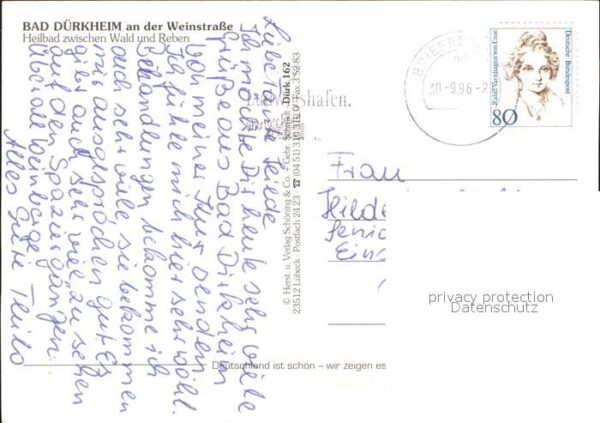 BAD DÜRKHEIM an der Weinstraße
Heilbad zwischen Wald und Reben
Liebe Tante Heide
Ich möchte Dir heute sehr viele
Grüße aus Bad Dürkheim
von meiner Kur senden.
Ich fühle mich hier sehr wohl.
Behandlungen bekomme ich
auch sehr viele sie bekommen
mir ausgesprochen gut. Es
gibt auch sehr viel zu sehen
auf den Spaziergängen.
Überall Weinberge
Alles Gute
© Herst. u. Verlag Schöning & Co. + Gebr. Schmidt Dürk 162
23512 Lübeck · Postfach 24 23 ☎ (04 51) 3 10 31 0 Fax 3 52 83
Deutschland ist schön – wir zeigen es
BRIEFZE
30.-9.96-2
Ludwigshafen.
Deutsche Bundespost
Rahel Varnhagen von Ense
80
Frau
Hilde
Senio
privacy protection
Datenschutz